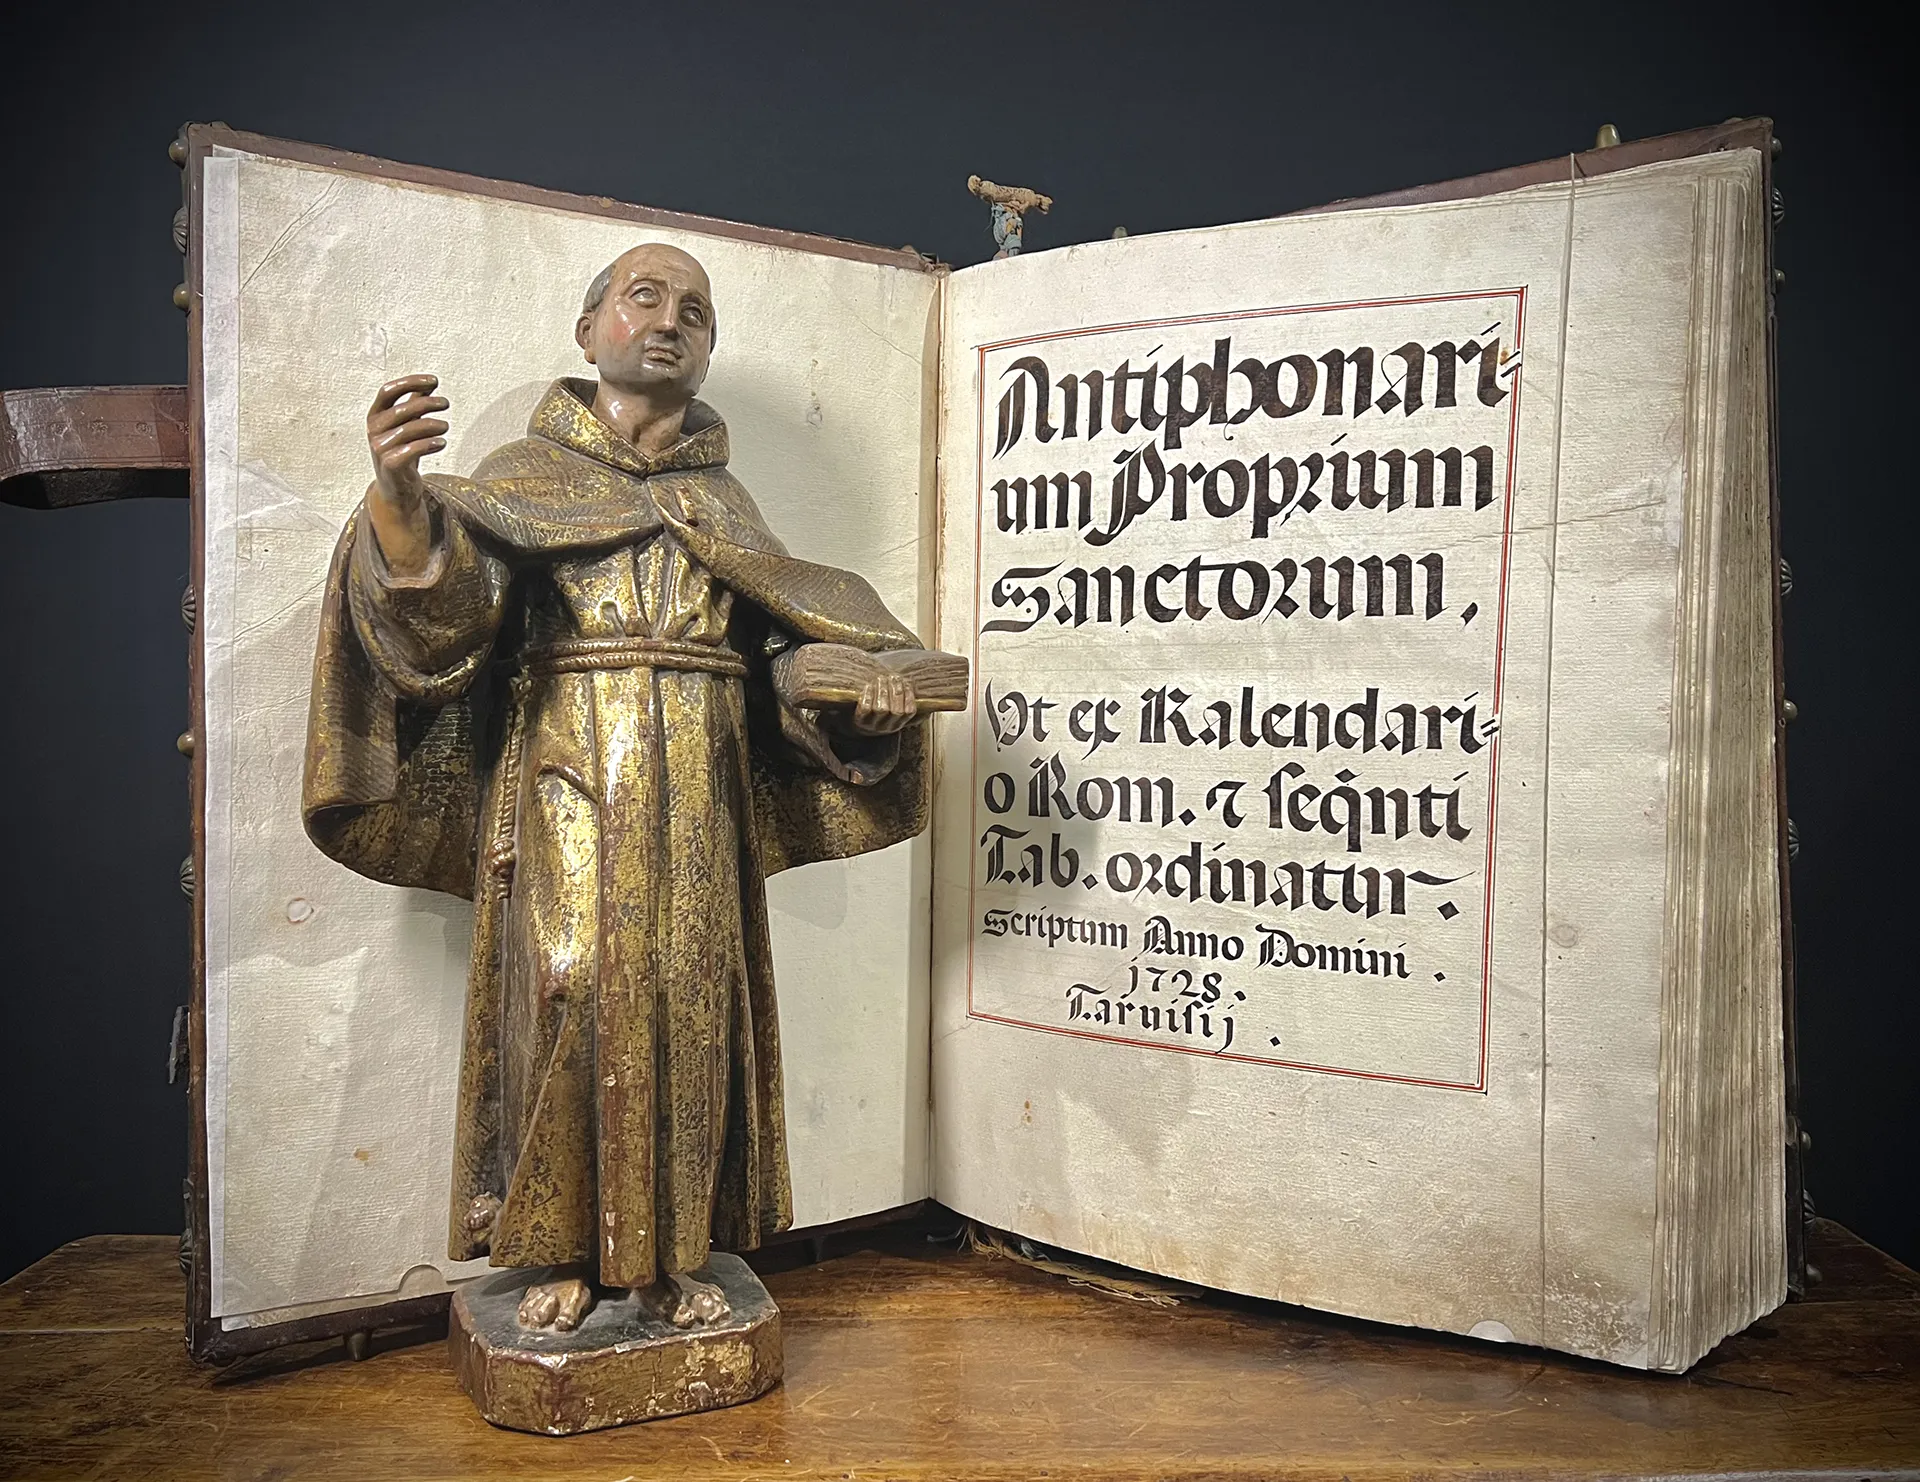 Antiphonari=
um Proprium
Sanctorum.
Vt ex Kalendari=
o Rom. ⁊ ſeqͥnti
Tab. ordinatur.
Scriptum Anno Domini.
1728.
Taruiſij.